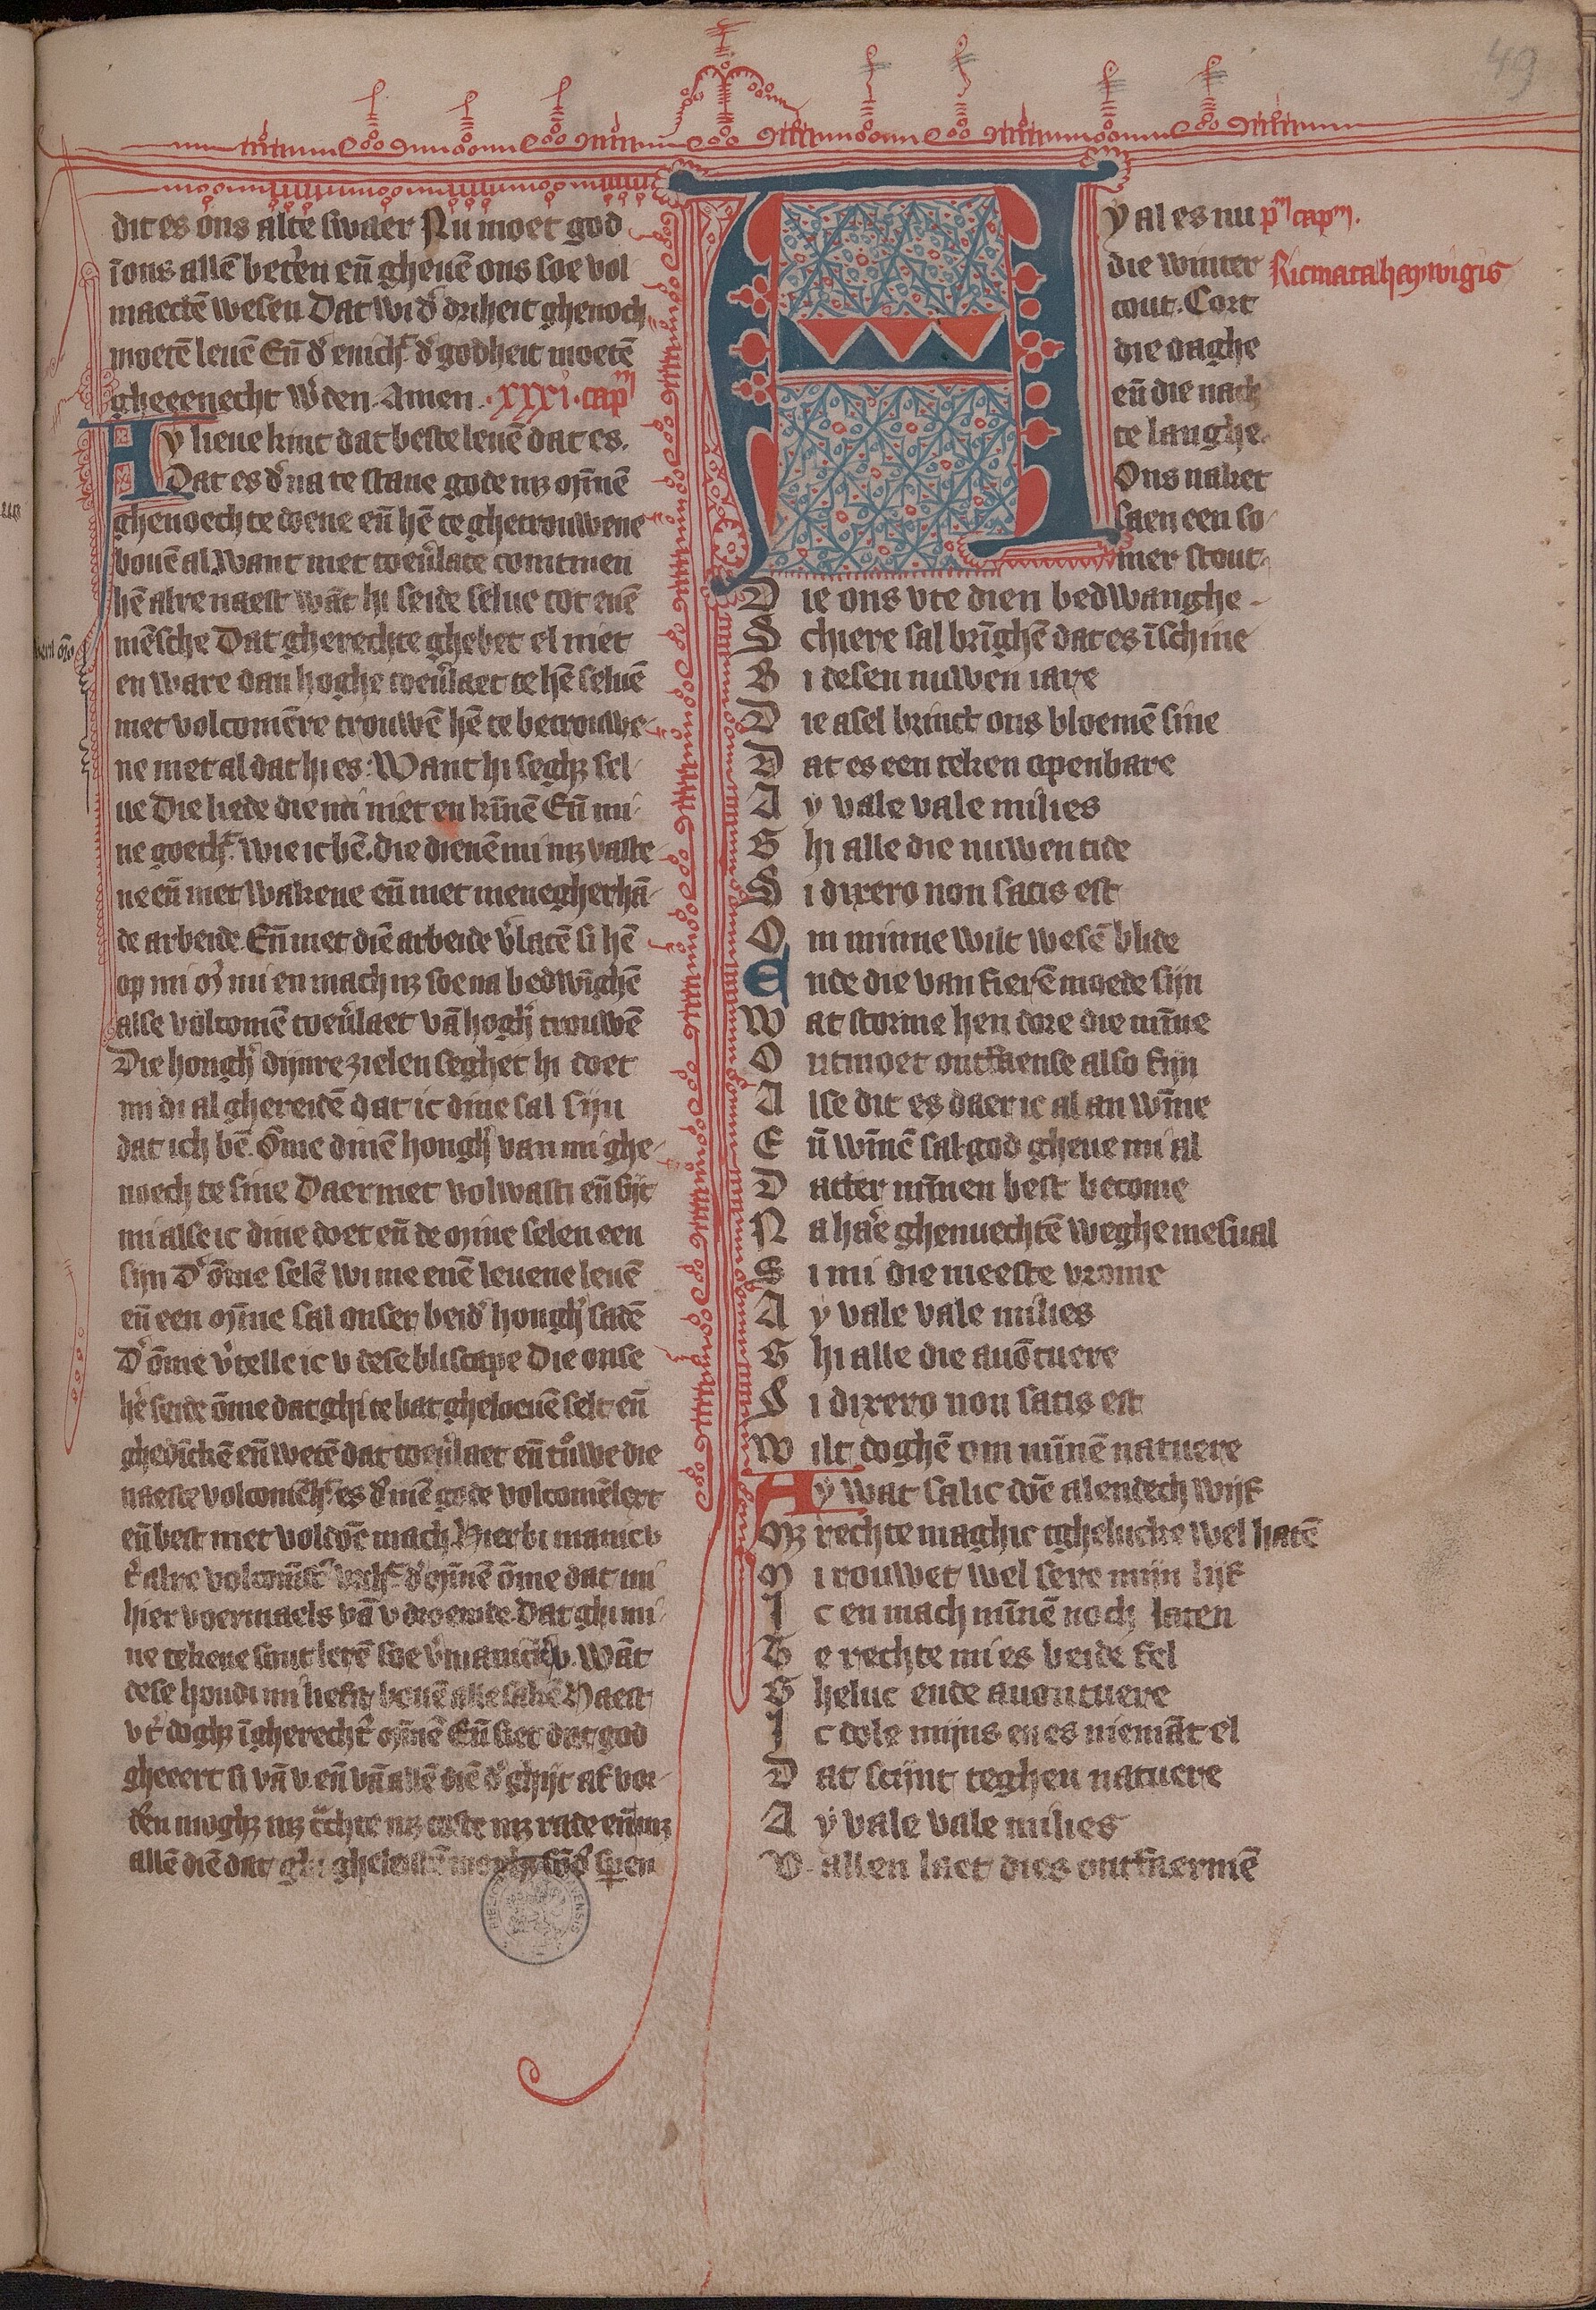 49
dit es ons alte swaer Nu moet god
ı̄ons allē bet'en eñ gheuē ons soe vol
maectē wesen Dat wi d' driheit ghenoch
moetē leuē Eñ d' enich' d' godheit moetē
gheeenecht w'den. Amen. xxxi. capᵐ
Ay lieue kint dat beste leuē dat es.
Dat es d'na te staue gode mʒ mı̄nē
ghenoech te doene eñ hē te ghetrouwene
bouē al. Want met toeu'late comtmen
hē alre naest wāt hi seide selue tot euē
mēsche Dat gherechte ghebet el niet
en ware dan hoghe toeu'laet te hē seluē
met volcomēre trouwē hē te betrouwe
ne met al dat hi es: Want hi seghʒ sel
ue Die liede die mi niet en kı̄nē Eñ mi
ne goeth' wie ic bē. die dienē mi mʒ vaste
ne eñ met wakene eñ met menegherhā
de arbeide. Eñ met diē arbeide v'latē si hē
op mi m' mi en mach mʒ soe na bedwı̄ghē
alse volcomē toeu'laet vā hogh' trouwē
Die hongh' dijnre zielen seghet hi doet
mi di al ghereidē dat ic dine sal sijn
dat ich bē. Ōme dinē hongh' van mi ghe
noech te sine Daer met volwasti eñ bijt
mi alse ic dine doet eñ de mine selen een
sijn D' ōme selē wi me euē leuene leuē
eñ een mı̄ne sal onser beid' hongh' sadē
D' ōme v'telle ic v dese bliscape Die onse
h'e seide ōme dat ghi te bat gheloeuē selt eñ
ghedı̄ckē eñ wetē dat toeu'laet eñ t'uwe die
naeste volcomēh' es d' mē gode volcomēlect
eñ best met voldōē mach. Hier bi manic v
hier voermaels vā v droemde. Dat ghi mi
ne tekene sout lerē soe v'manic v. Wāt
v t' doghʒ ı̄gherecht' mı̄nē Eñ siet dat god
gheeert si vā v. eñ vā allē diē d' ghijt af vor
allē diē dat ghi
Ay al es nu pᵐ capᵐ.
die winter Ricmata haywigis
cout. Cort
die daghe
eñ die nach
te langhe.
Ons naket
saen een so
mer stout
Die ons vte dien bedwanghe
Schiere sal brı̄ghē dat es ı̄schine
Bi desen nuwen iare
Die asel brinct ons bloemē sine
Dat es een teken openbare
Ay vale vale milies
Ghi alle die nuwen tide
Si dixero non satis est
Om minne wilt wesē blide
Ende die van fierē moede sijn
Wat storme hen dore die mı̄ne
Ontmoet ontfaense also fijn
Alse dit es daer ic al an wı̄ne
Eñ wı̄nē sal. god gheue mi al
Datter mı̄nen best become
Na ha'e ghenuechtē weghe mesual
Si mi die meeste vrome
Ay vale vale milies
Ghi alle die auōtuere
Si dixero non satis est
Wilt doghē om mı̄nē natuere
Ay wat salic dōē alendech wijf
Mʒ rechte maghic tghelucke wel hatē
Mi rouwet wel sere mijn lijf
Ic en mach mı̄nē noch laten
Te rechte mi es beide fel
Gheluc ende auontuere
Ic dole mijns en es niemāt el
Dat scijnt teghen natuere
Ay vale vale milies
V allen laet dies ontfaermē